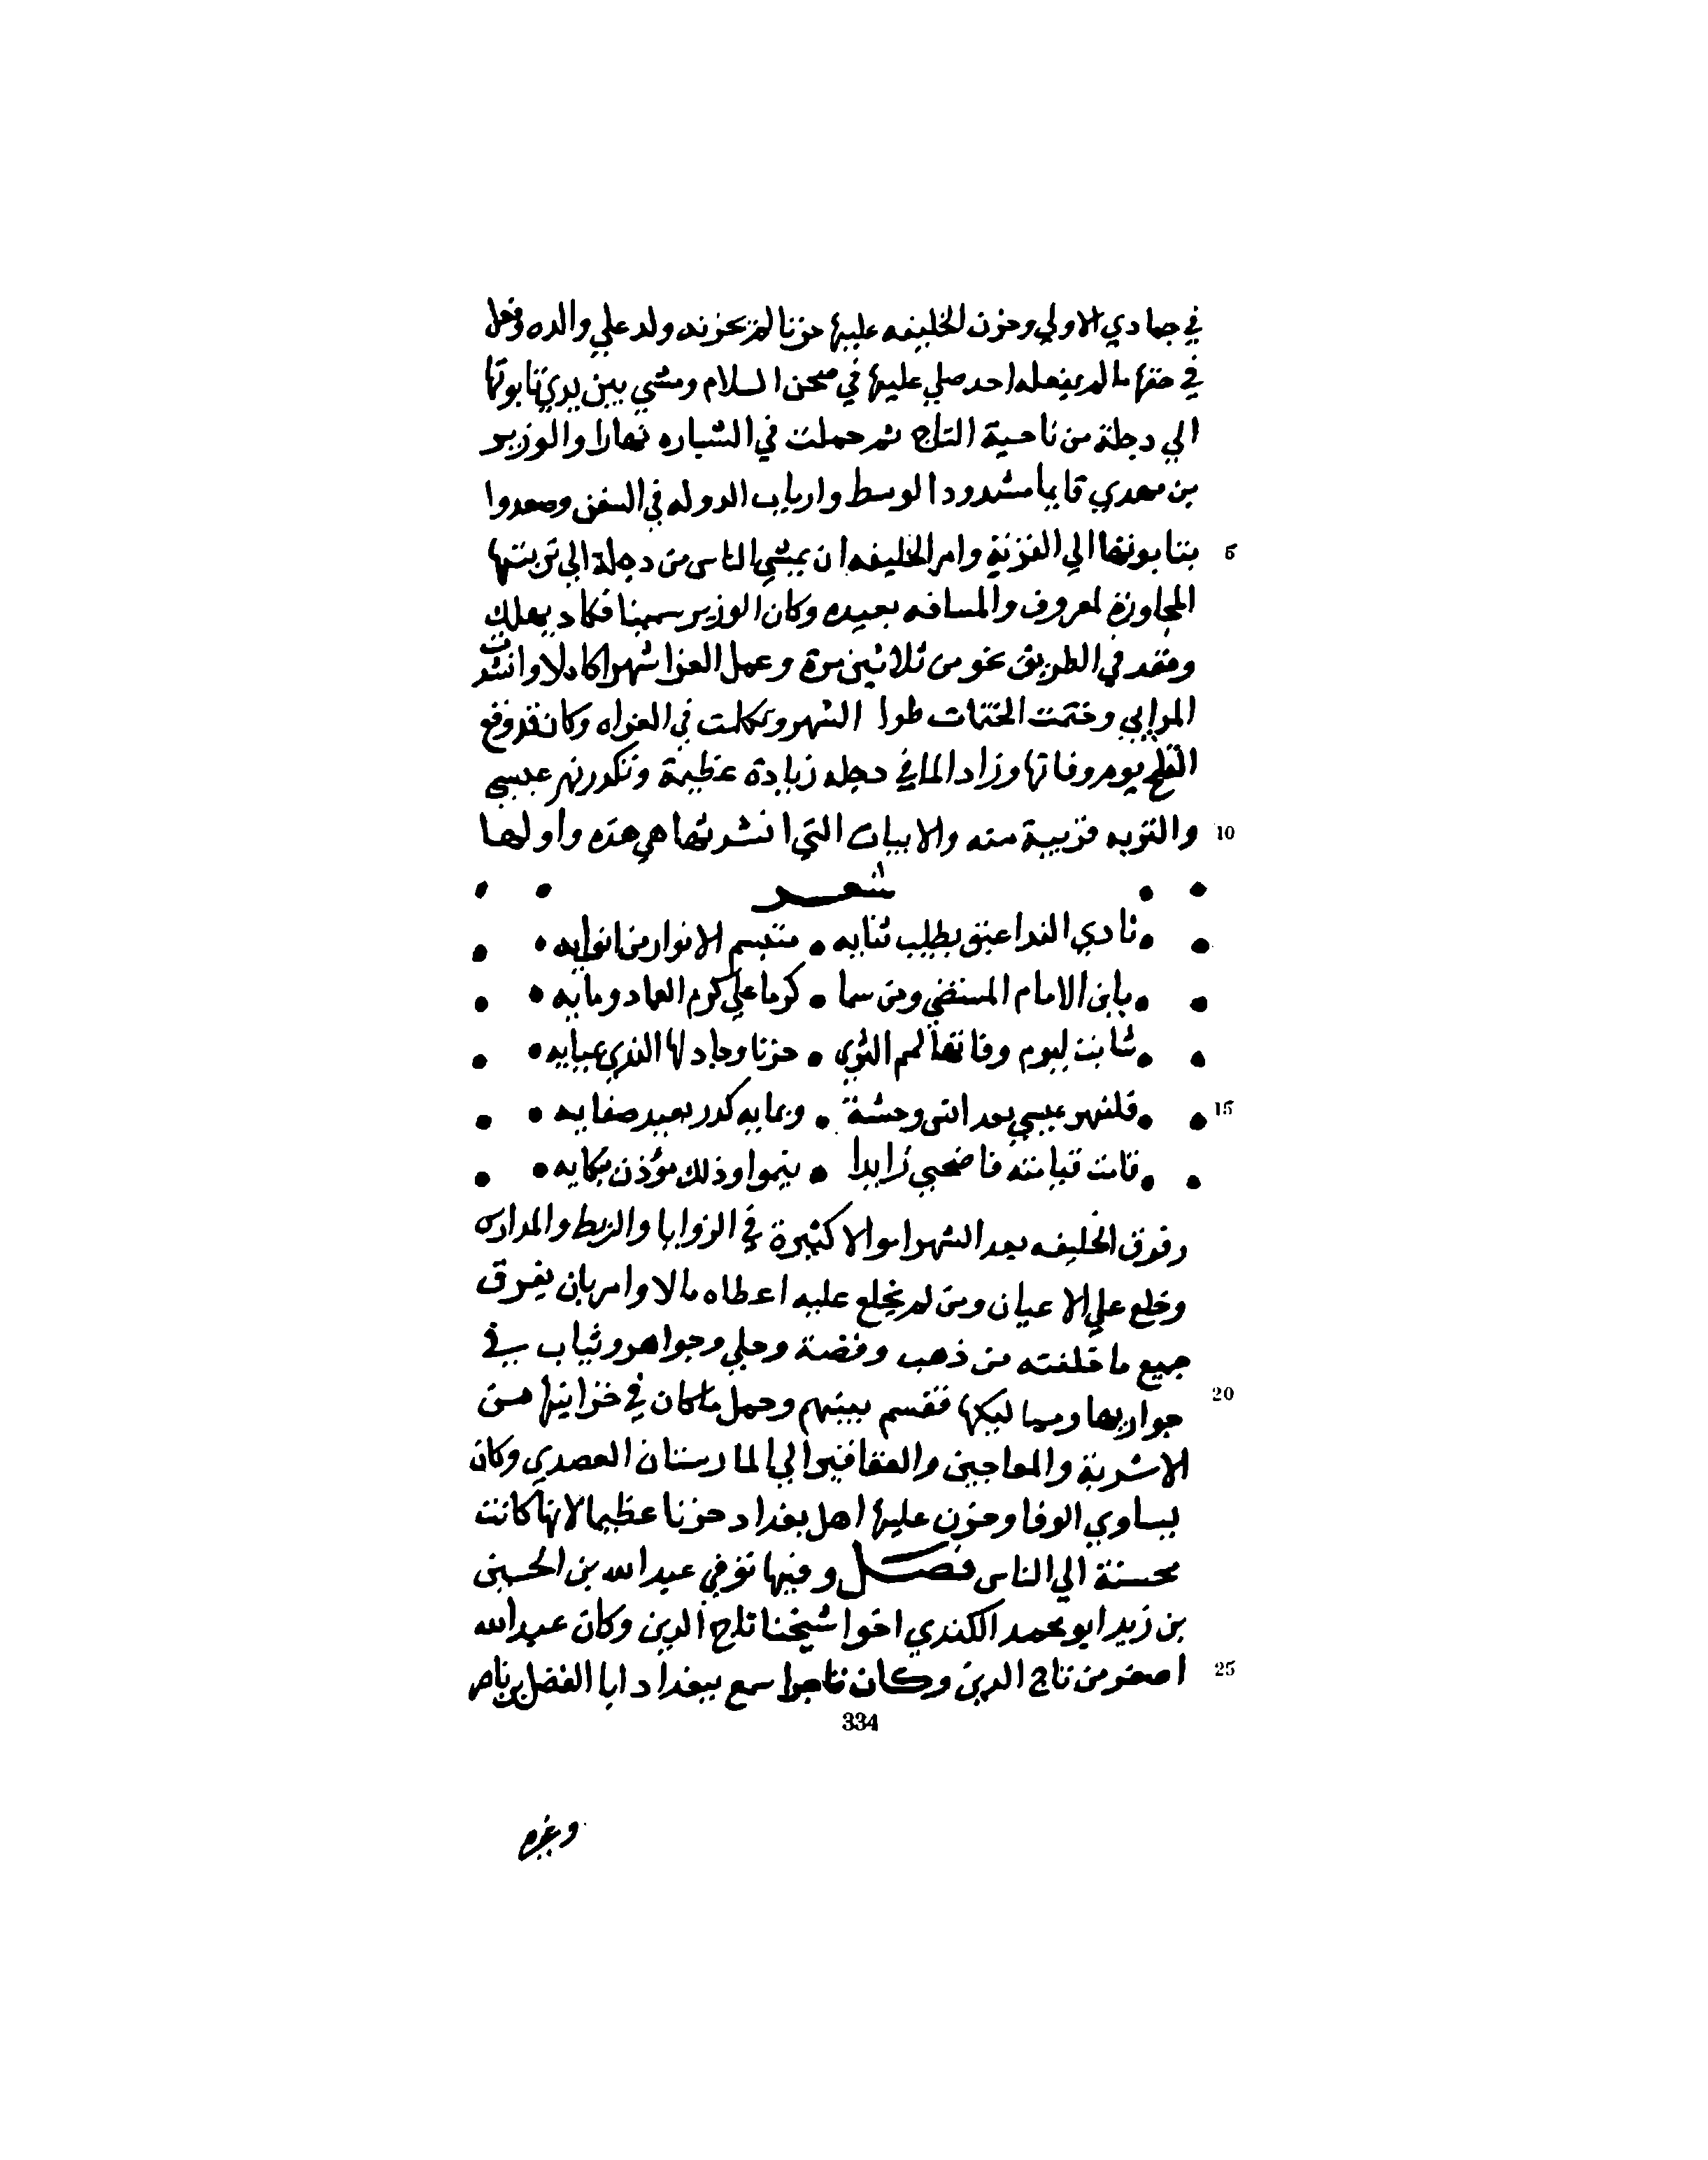 في جمادي الاولي وحزن الخليفه عليها حزنا لم يحزنه ولد علي والده وفعل
في حقها مالم يفعله احد صلي عليها في صحن السلام ومشي بين يدي تابوتها
الي دجلة من ناحية التاج ثم حملت في الشباره نهارا والوزير
بن مهدي قايما مشدود الوسط وارباب الدوله في السفن وصعدوا
5 بتابوتها الي الغزنة وامر الخليفه ان يمشي الناس من دجلة الي تربتها
المجاوزة لمعروف والمسافه بعيده وكان الوزير سمينا فكاد يهلك
وقعد في الطريق نحو من ثلاثين مرة وعمل العزا شهرا كاملا وانشدت
المراثي وختمت الختمات طوا الشهر وتكلمت في العزاء وكان قد وقع
يوم وفاتها وزاد الما في دجله زيادة عظيمة وتكدر نهر عيسي
10 والتربه قريبة منه والابيات التي انشدتها هي هذه واولها
شعر
نادي الندا عبق بطيب ثنايه • متبسم الانوار من انوايه
يابن الامام المستضي ومن سما • كرما علي كرم العماد ومايه
شابت ليوم وفاتها لمم الثري • حزنا وجاد لها الندي بمايه
15 فلنهر عيسي بعد انس وحشة • وبمايه كدر بعيد صفايه
قامت قيامته فاضحي زايدا • ينموا وذلك مؤذن ببكايه
وفرق الخليفه بعد الشهر اموالا كثيرة في الزوايا والربط والمدارس
وخلع علي الاعيان ومن لم يخلع عليه اعطاه مالا وامر بان يفرق
جميع ما خلفته من ذهب وفضة وحلي وجواهر وثياب في
20 جواريها ومماليكها فقسم بينهم وحمل ما كان في خزاينها من
الاشربة والمعاجين والعقاقير الي المارستان العضدي وكان
يساوي الوفا وحزن عليها اهل بغداد حزنا عظيما لانها كانت
محسنة الي الناس فصل وفيها توفي عبد الله بن الحسين
بن زيد ابو محمد الكندي اخوا شيخنا تاج الدين وكان عبد الله
25 اصغر من تاج الدين وكان تاجرا سمع ببغداد ابا الفضل بن ناصر
334
وغيره